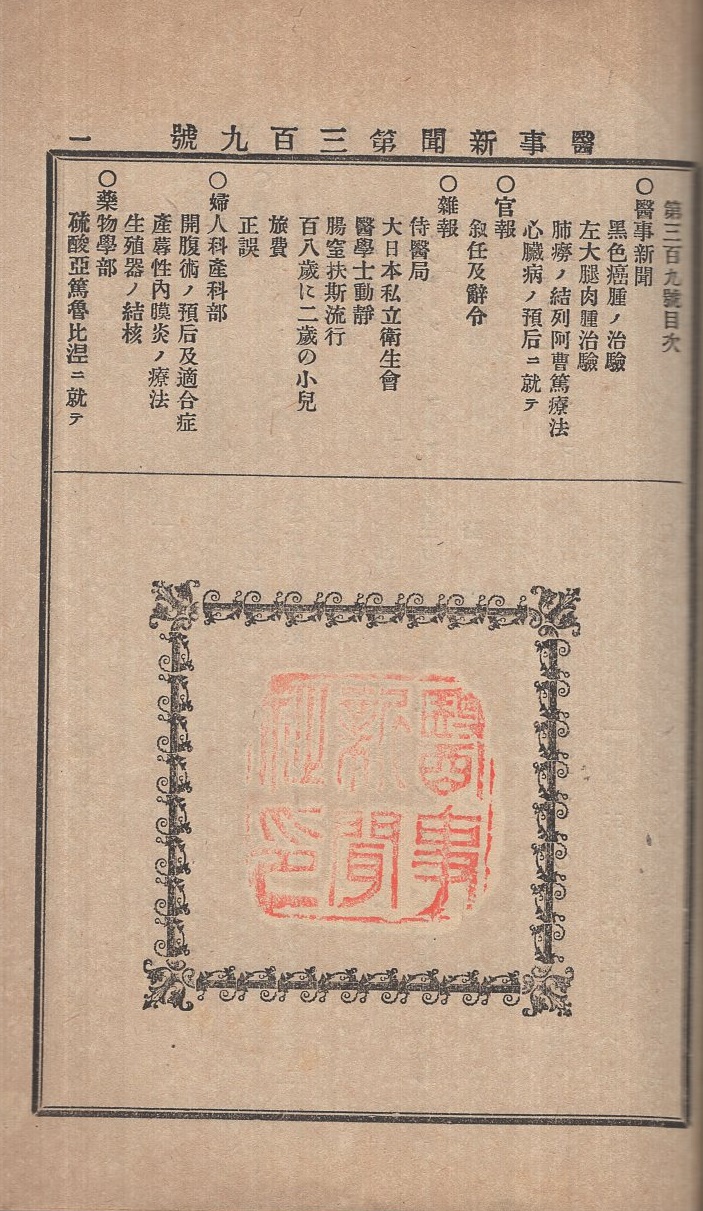 醫事新聞第三百九號
一
第三百九號目次
〇醫事新聞
黑色癌腫ノ治驗
左大腿肉腫治驗
肺癆ノ結列阿曹篤療法
心臟病ノ預后ニ就テ
〇官報
敍任及辭令
〇雜報
侍醫局
大日本私立衛生會
醫學士動靜
腸窒扶斯流行
百八歲に二歲の小兒
旅費
正誤
〇婦人科產科部
開腹術ノ預后及適合症
產蓐性內膜炎ノ療法
生殖器ノ結核
〇藥物學部
硫酸亞篤魯比涅ニ就テ
醫事
新聞
社印